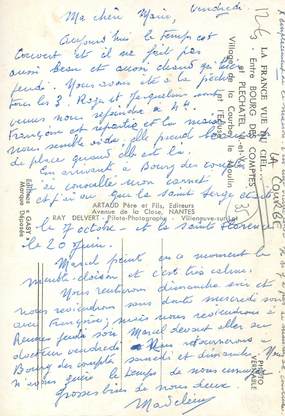 Vendredi.
Ma chère Marie,
Aujourd'hui le temps est
couvert et il ne fait pas
aussi beau et aussi chaud qu'hier
jeudi. Nous avons été à la pêche
tous les 3. Roger et Jacqueline sont
venus nous rejoindre à 4h.
Françoise est repartie et la maison
nous semble vide, elle prend beaucoup
de place quand elle est là.
En arrivant à Bourg des Comptes
j'ai consulté mon carnet
et j'ai vu que la Saint Serge était
le 7 octobre et la Sainte Florence
le 20 juin.
Marcel peint en ce moment le
meuble cloison et c'est très calme.
Nous rentrons dimanche soir et
nous reviendrons sans doute mercredi soir
avec Françoise, mais nous reviendrons à
Rennes jeudi soir Marcel devant aller au
docteur vendredi. Nous retournerons à
Bourg des Comptes samedi et dimanche. Nous
n'avons guère le temps de nous ennuyer.
Grosses bises de nous deux.
Madeleine
LA FRANCE VUE DU CIEL
Entre BOURG-DES-COMPTES
et PLÉCHATEL (I.-et-V.)
Village de la Courbe, le Moulin
et l'Écluse
LA COURBE
35
ARTAUD Père et Fils, Editeurs
Avenue de la Close, NANTES
RAY DELVERT - Pilote-Photographe - Villeneuve-sur-Lot
Editions "GABY"
Marque Déposée
PHOTO
VÉRITABLE